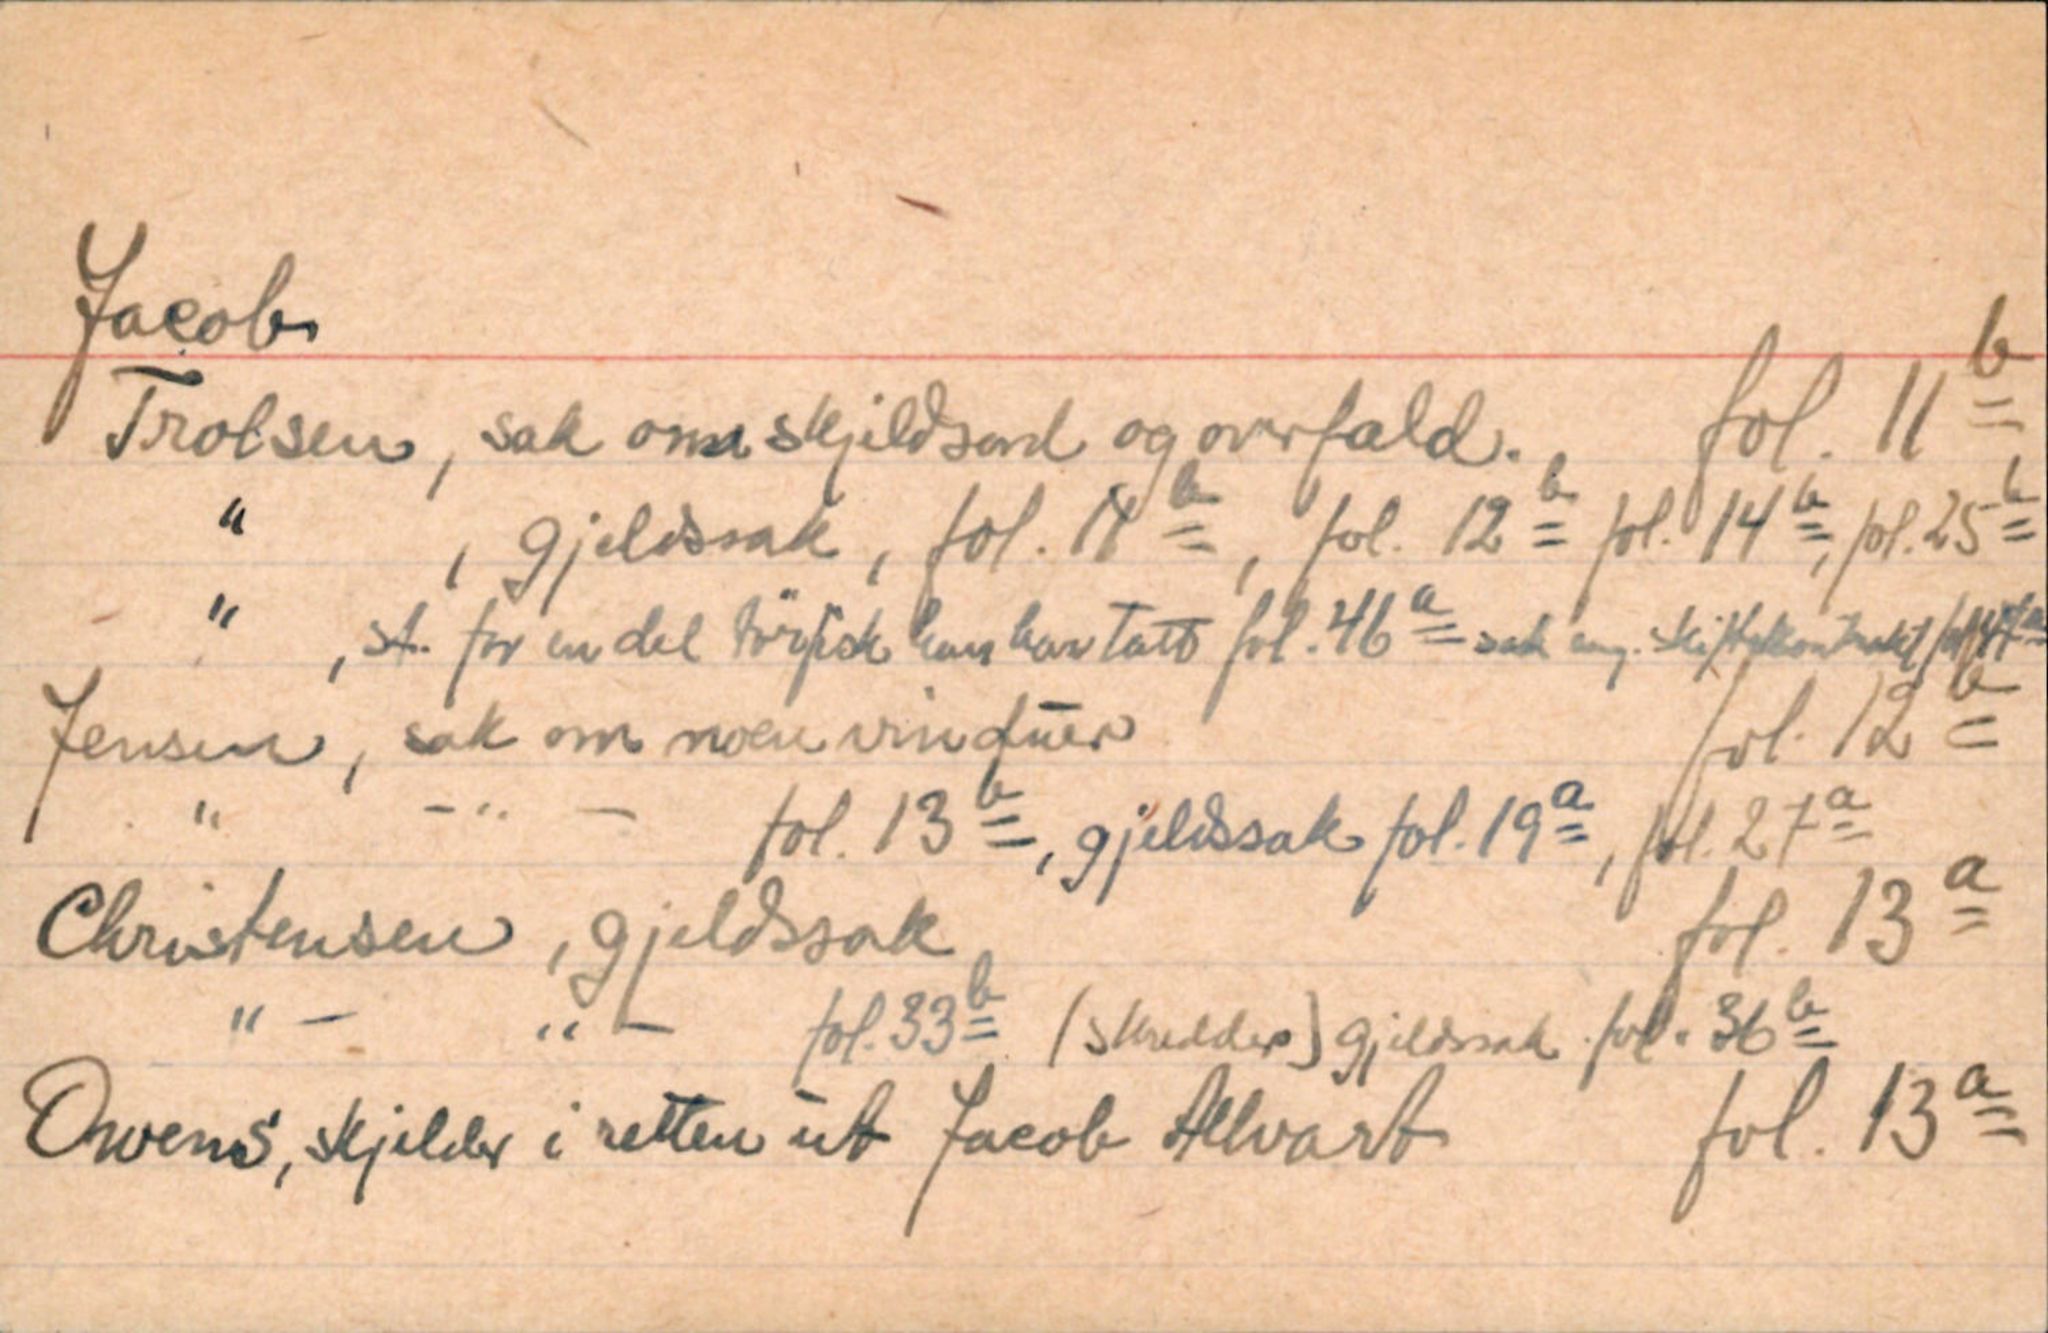 Jacob
Trolsen, sak om skjeldsord og overfald. fol. 11b
" , gjeldssak, fol. 11b, fol. 12b fol. 14b, fol. 25b
" , st. for en del törfisk han har tatt fol. 46a sak ang. skiftekontrakt fol. 47a
Jensen, sak om noen vinduer fol. 12b
" - " - fol. 13b, gjeldssak fol. 19a, fol. 27a
Christensen, gjeldssak fol. 13a
" - " - fol. 33b (skredder) gjeldssak fol. 36b
Owens, skjelder i retten ut Jacob Allvart fol. 13a